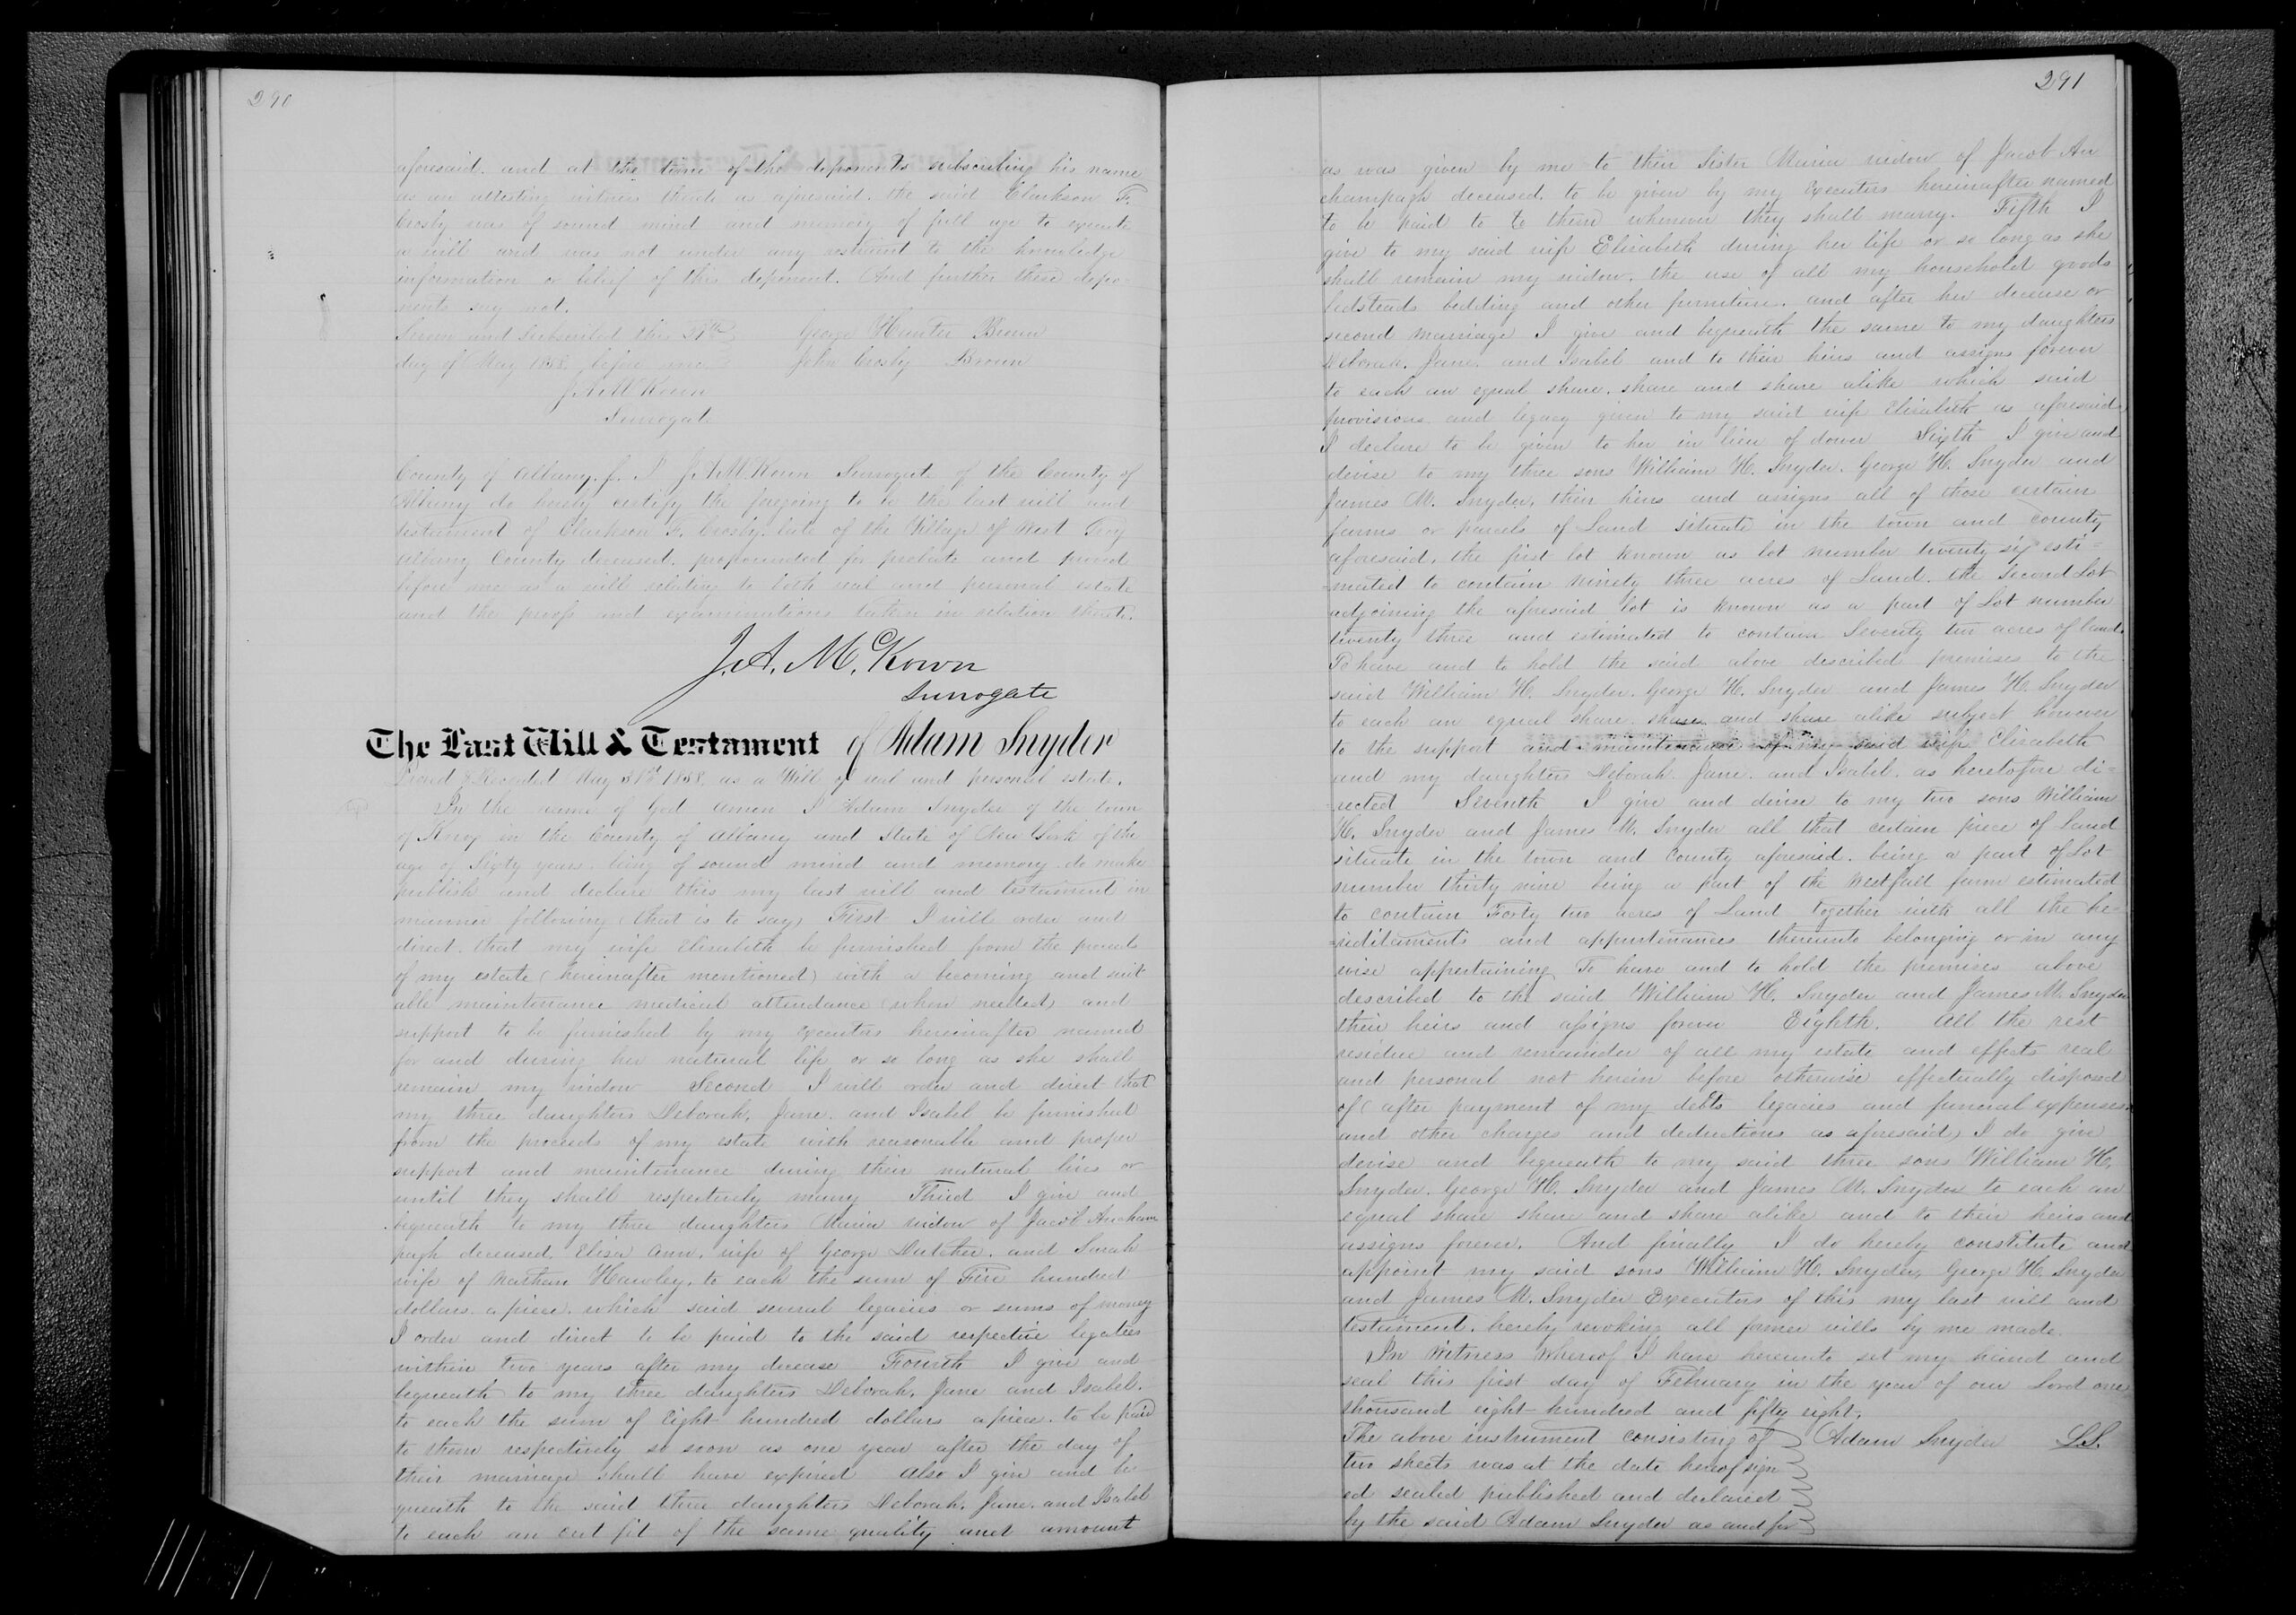 290
aforesaid. and at the time of the deponents subscribing his name
as an attesting witness thereto as aforesaid. the said Clarkson F.
Crosby was of sound mind and memory of full age to execute
a will and was not under any restraint to the knowledge
information or belief of this deponent. And further these depo-
nents say not.
Sworn and Subscribed this 29th George Hunter Brown
day of May 1858 before me John Crosby Brown
J A McKown
Surrogate
County of Albany. ss. I J. A. McKown Surrogate of the County of
Albany do hereby certify the foregoing to be the last will and
testament of Clarkson F. Crosby late of the Village of West Troy
Albany County deceased. propounded for probate and proved
before me as a will relating to both real and personal estate
and the proofs and examinations taken in relation thereto.
J. A. McKown
Surrogate
The Last Will & Testament of Adam Snyder
Proved & Recorded May 31st 1858. as a Will of real and personal estate.
In the name of God Amen I Adam Snyder of the town
of Knox in the County of Albany and State of New York of the
age of Sixty years. being of sound mind and memory do make
publish and declare this my last will and testament in
manner following (that is to say) First I will order and
direct. that my wife Elisabeth be furnished from the proceeds
of my estate (hereinafter mentioned) with a becoming and suit
able maintenance medical attendance (when needed) and
support to be furnished by my executors hereinafter named
for and during her natural life or so long as she shall
remain my widow Second I will order and direct that
my three daughters Deborah, Jane. and Isabel be furnished
from the proceeds of my estate with reasonable and proper
support and maintenance during their natural lives or
until they shall respectively marry Third I give and
bequeath to my three daughters Maria widow of Jacob Aucham
pagh deceased. Elisa Ann. wife of George Dutcher. and Sarah
wife of Nathan Hawley. to each the sum of Five hundred
dollars. apiece. which said several legacies or sums of money
I order and direct to be paid to the said respective legatees
within two years after my decease Fourth I give and
bequeath to my three daughters Deborah, Jane and Isabel.
to each the sum of Eight hundred dollars apiece. to be paid
to them respectively so soon as one year after the day of
their marriage shall have expired Also I give and be
queath to the said three daughters Deborah. Jane. and Isabel
to each an out fit of the same quality and amount
291
as was given by me to their Sister Maria widow of Jacob Au
champagh deceased. to be given by my executors hereinafter named
to be paid to to them whenever they shall marry. Fifth I
give to my said wife Elisabeth during her life or so long as she
shall remain my widow. the use of all my household goods
bedsteads bedding and other furniture. and after her decease or
second marriage I give and bequeath the same to my daughters
Deborah. Jane. and Isabel and to their heirs and assigns forever
to each an equal share. share and share alike which said
provisions and legacy given to my said wife Elisabeth as aforesaid
I declare to be given to her in lieu of dower Sixth I give and
devise to my three sons William H. Snyder. George H. Snyder and
James M. Snyder, their heirs and assigns all of those certain
farms or parcels of Land situate in the town and County
aforesaid. the first lot known as lot number twenty six esti-
-mated to contain ninety three acres of Land. the Second Lot
adjoining the aforesaid lot is known as a part of Lot number
twenty three and estimated to contain Seventy two acres of land.
To have and to hold the said above described premises to the
said William H. Snyder. George H. Snyder and James H. Snyder
to each an equal share. share and share alike subject however
to the support and maintenance of my said wife Elisabeth
and my daughters Deborah Jane. and Isabel. as heretofore di-
-rected Seventh I give and devise to my two sons William
H. Snyder and James M. Snyder all that certain piece of Land
situate in the town and County aforesaid. being a part of Lot
number thirty nine being a part of the Westfall farm estimated
to contain Forty two acres of Land together with all the he-
-reditaments and appurtenances thereunto belonging or in any
wise appertaining To have and to hold the premises above
described to the said William H. Snyder and James M. Snyder
their heirs and assigns forever Eighth. All the rest
residue and remainder of all my estate and effects real
and personal not herein before otherwise effectually disposed
of (after payment of my debts legacies and funeral expenses
and other charges and deductions as aforesaid) I do give
devise and bequeath to my said three sons William H.
Snyder. George H. Snyder and James M. Snyder to each an
equal share share and share alike and to their heirs and
assigns forever. And finally I do hereby constitute and
appoint my said sons William H. Snyder, George H. Snyder
and James M. Snyder Executors of this my last will and
testament. hereby revoking all former wills by me made.
In Witness Whereof I have hereunto set my hand and
seal this first day of February in the year of our Lord one
thousand eight hundred and fifty eight.
The above instrument consisting of Adam Snyder L.S.
two sheets was at the date hereof sign
ed sealed published and declared
by the said Adam Snyder as and for